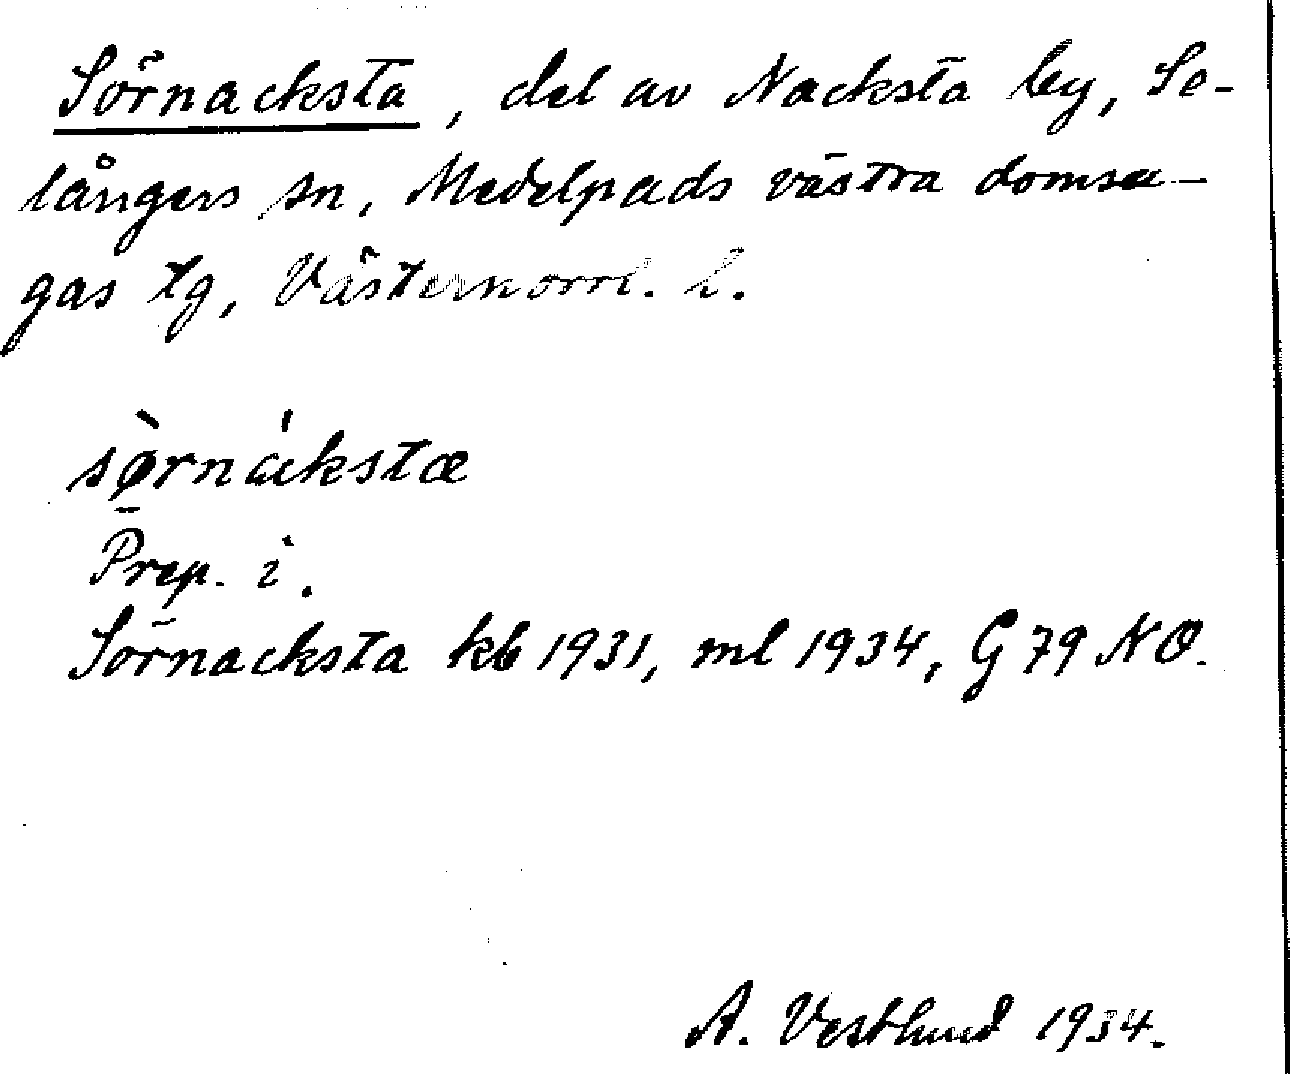 Sörnacksta, del av Nacksta by, Se-
långers sn, Medelpads västra domsa-
gas tg, Västernorrl. l.
sø̀rnáckstæ
Prep. i.
Sörnacksta kb 1931, ml 1934, G 79 NO.
A. Vestlund 1934.